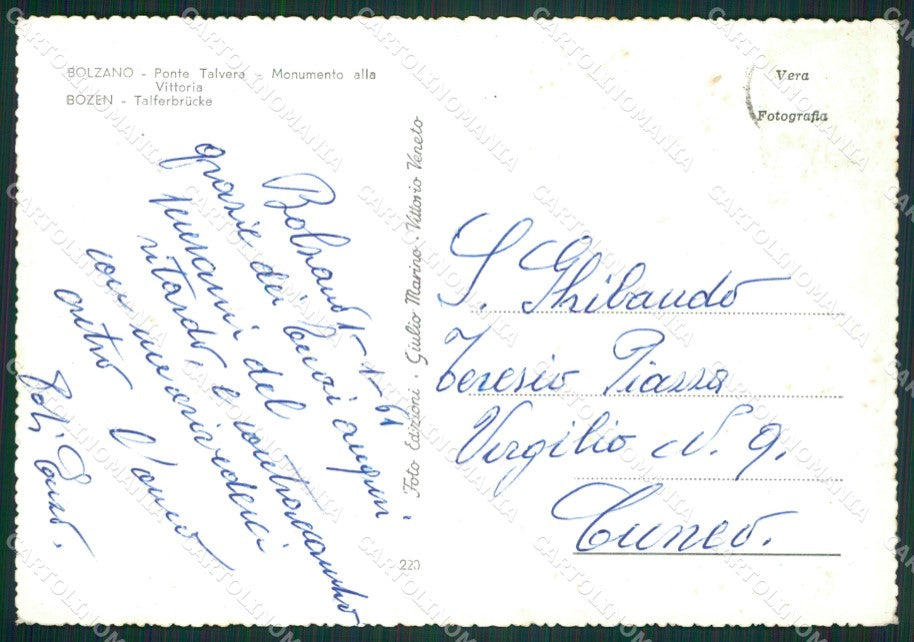 BOLZANO - Ponte Talvera Monumento alla
Vittoria
BOZEN - Talferbrücke
Vera
Fotografia
Foto Edizioni · Giulio Marino · Vittorio Veneto
220
Bolzano 1-1-61
grazie dei tuoi auguri.
del
ritardo, e contraccambio
con
entro l'anno
S. Ghibaudo
Teresio Piazza
Virgilio N. 9.
Cuneo.
CARTOLINOMANIA